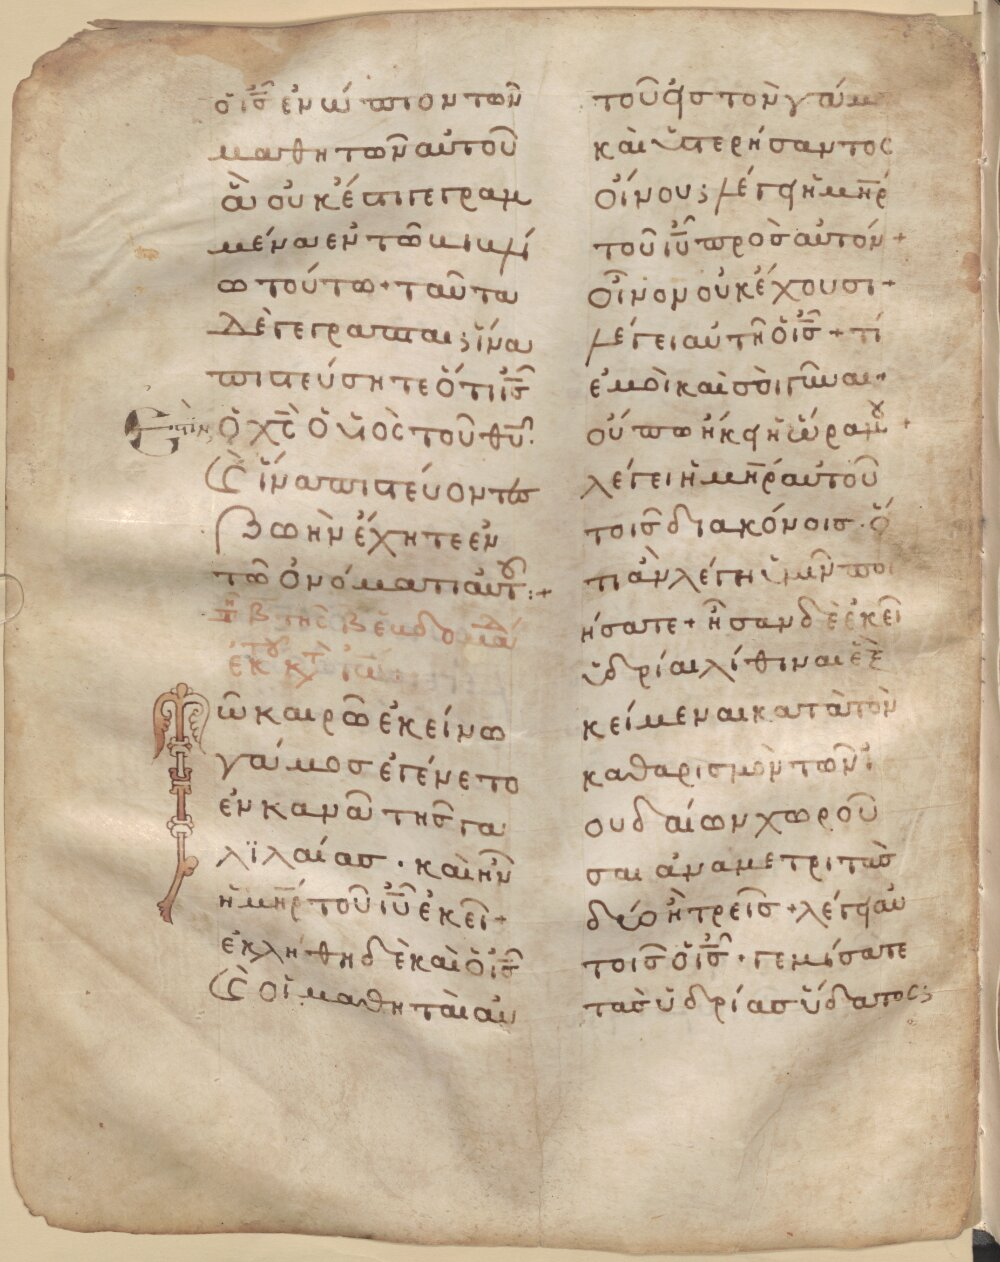 ὁ ἰ̅ς̅ ἐνώπιον τῶν
μαθητῶν αὐτοῦ
ἃ οὐκ ἔστι γεγραμ
μένα ἐν τῶ βιβλί
ω τούτω + ταῦτα
δὲ γέγραπται; ἵνα
πιστεύσητε ὅτι ἰ̅ς̅
ὁ χ̅ς̅ ὁ υἱὸς τοῦ θ̅υ̅.
ϗ ἵνα πιστεύοντες
ζωὴν ἔχητε ἐν
τῶ ὀνόματι αὐτοῦ :+
τῇ β τῆς βεβδομάδ
ἐκ τοῦ κτ ἰω
Τῶ καιρῶ ἐκείνω
γάμος ἐγένετο
ἐν κανᾶ τῆς γα
λϊλαίας · καὶ ἦν
ἡ μ̅η̅ρ̅ τοῦ ἰ̅υ̅ ἐκεῖ +
ἐκλήθη δὲ καὶ ὁ ἰ̅ς̅
ϗ οἱ μαθηταὶ αὐ
τοῦ εἰς τὸν γάμ
καὶ ὑστερήσαντος
οἴνου; λέγει ἡ μ̅η̅ρ̅
τοῦ ἰ̅υ̅ πρὸς αὐτόν +
οἶνον οὐκ ἔχουσι +
λέγει αὐτῆ ὁ ἰ̅ς̅ + τί
ἐμοὶ καὶ σοὶ γῦναι +
οὔπω ἥκει ἡ ὥρα μου +
λέγει ἡ μ̅η̅ρ̅ αὐτοῦ
τοῖς διακόνοις · ὅ
τι ἂν λέγη ὑμῖν ποι
ήσατε + ἦσαν δὲ ἐκεῖ
ὑδρίαι λίθιναι ἓξ
κείμεναι κατὰ τὸν
καθαρισμὸν τῶν ἰ
ουδαίων χωροῦ
σαι ἀνα μετριτὰς
δύο ἢ τρεῖς + λέγει αὐ
τοῖς ὁ ἰ̅ς̅ · γεμίσατε
τὰς ὑδρίας ὕδατος;